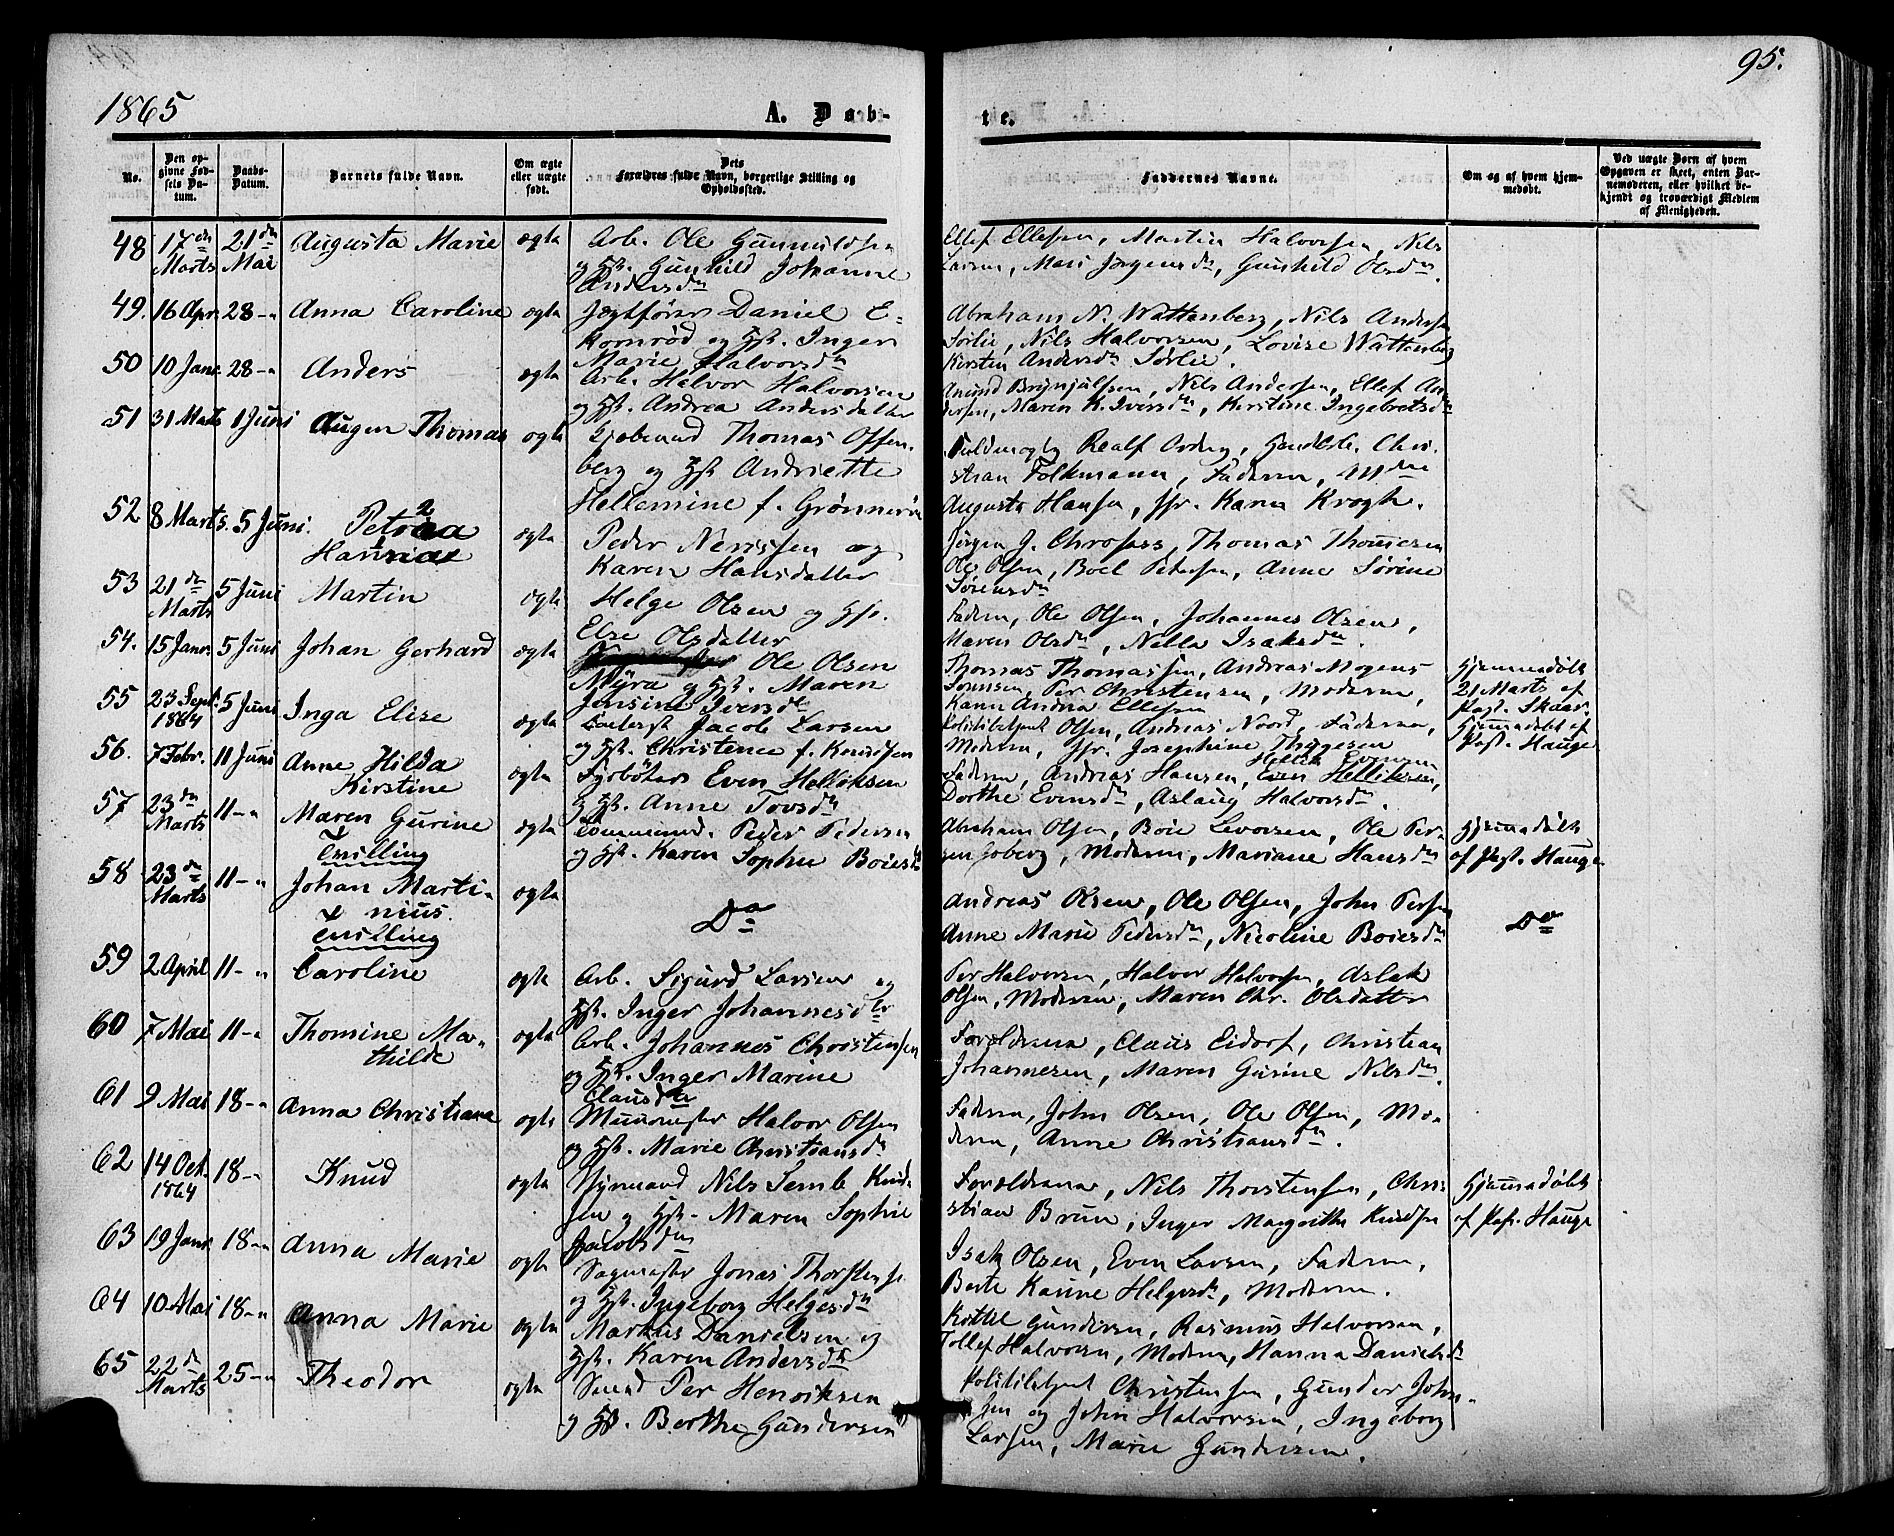 1865
A. Døb-
te.
95.
No.
Den op-
givne Fød-
sels Da-
tum.
Daabs-
Datum.
Barnets fulde Navn.
Om ægte
eller uægte
født.
Dets
Forældres fulde Navn, borgerlige Stilling og
Opholdssted.
Faddernes Navne.
Om og af hvem hjem-
medøbt.
Ved uægte Børn af hvem
Opgaven er skeet, enten Bar-
nemoderen, eller hvilket be-
kjendt og troværdigt Medlem
af Menigheden.
48 17de Marts 21de Mai Augusta Marie ægte Arb. Ole Gunnuldsen
og Hst. Gunhild Johanne
Andersdtr
Ellef Ellefsen, Martin Halvorsen, Nils
Larsen, Mari Jørgensdtr, Gunhild Olsdtr.
49. 16 Apr. 28-" Anna Caroline ægte Jægtfører Daniel E-
komrød og Hst. Inger
Marie Halvorsdtr
Abraham N. Wattenberg, Nils Andersen
Sørlie, Nils Halvorsen, Lovise Wattenberg
Kirsten Andersdtr Sørlie.
50 10 Janr. 28-" Anders ægte Arb. Halvor Halvorsen
og Hst. Andrea Andersdatter
Amund Brynjulfsen, Nils Andersen, Ellef An
dersen, Maren K. Iversdtr, Kirstine Ingebretsdtr
51 31 Marts 1 Juni Augen Thomas ægte Sjømand Thomas Offen-
berg og Hst Andriette
Hellemine f. Grønnerød
Fuldmægtig Realf, Handelsb. Chri-
stian Folkmann, Faderen, Mdme
Augusta Hansen, Jfr. Karen Krogh.
52 8 Marts. 5 Juni. Petrea 2
Hansine 1 ægte Peder Nerissen og
Karen Hansdatter
Jørgen J. Thomas Thomesen
Ole Olsen, Boel Petersen, Anne Sørine
Sørensdtr
53 21de Marts 5 Juni Martin ægte Helge Olsen og Hst.
Else Olsdatter
Faderen, Ole Olsen, Johannes Olsen,
Maren Olsdtr, Nella Isaksdtr.
54. 15 Janr. 5 Juni Johan Gerhard ægte Ole Olsen
Myra og Hst. Maren
Jensine Iversdtr
Thomas Thomassen, Andreas Mogens
Sørensen, Per Christensen, Moderen,
Karen Andrea Ellefsen
Hjemmedøbt
21 Marts af
Past. Skaar.
55 23 Sept. 1864 5 Juni Inga Elise ægte Jacob Larsen
og Hst. Christence f. Knudsen
Politibetjent Olsen, Andreas Noord, Faderen,
Moderen, Jfr. Josephine Thygesen
Hjemmedøbt af
Past. Hauge
56. 7 Febr. 11 Juni Anne Hilda
Kirstine ægte Fyrbøter Even Helliksen
og Hst. Anne Tovsdtr
Hellik Evensen
Faderen, Andreas Hansen, Even Helliksen,
Dorthe Evensdtr, Aslaug Halvorsdtr.
57 23de Marts 11-" Maren Gurine
Tvilling ægte Tømmermd. Peder Pedersen
og Hst. Karen Sophie Boiesdtr
Abraham Olsen, Boie Levorsen, Ole Per-
sen Moderen, Mariane Hansdtr
Hjemmedøbt
af Past. Hauge
58 23de Marts 11-" Johan Marti-
nius.
Tvilling ægte Do
Andreas Olsen, Ole Olsen, John Persen
Anne Marie Pedersdtr, Nicoline Boiesdtr
Do
59 2 April 11-" Caroline ægte Arb. Sigurd Larsen og
Hst. Inger Johannesdtr
Per Halvorsen, Halvor Halvorsen, Aslak
Olsen, Moderen, Maren Chr. Olsdatter
60 7 Mai 11-" Thomine Ma-
thilde ægte Arb. Johannes Christensen
og Hst. Inger Marine
Clausdtr
Forældrene, Claus Eidorf, Christian
Johannesen, Maren Gurine Nilsdtr.
61 9 Mai 18-" Anna Christiane ægte Muurmester Halvor Olsen
og Hst. Marie Christiansdtr
Faderen, John Olsen, Ole Olsen, Mo-
deren, Anne Christiansdtr.
62 14 Oct. 1864 18-" Knud ægte Styrmand Nils Semb Knud-
sen og Hst. Maren Sophie
Jacobsdtr
Forældrene, Nils Thorstensen, Chri-
stian Brun, Inger Margrethe Knudsen
Hjemmedøbt
af Past. Hauge
63 19 Janr. 18-" Anna Marie ægte Sagmester Jonas Thorstensen
og Hst. Ingeborg Helgesdtr
Isak Olsen, Even Larsen, Faderen,
Berte Karine Helgesdtr, Moderen.
64 10 Mai 18-" Anna Marie ægte Markus Danielsen og
Hst. Karen Andersdtr
Kittel Gundersen, Rasmus Halvorsen,
Tollef Halvorsen, Moderen, Hanna Danielsdtr
65 22de Marts 25-" Theodor ægte Smed Per Henriksen
og Hst. Berthe Gundersen
Politibetjent Christensen, Gunder John-
sen og John Halvorsen, Ingeborg
Larsen, Marie Gundersen.